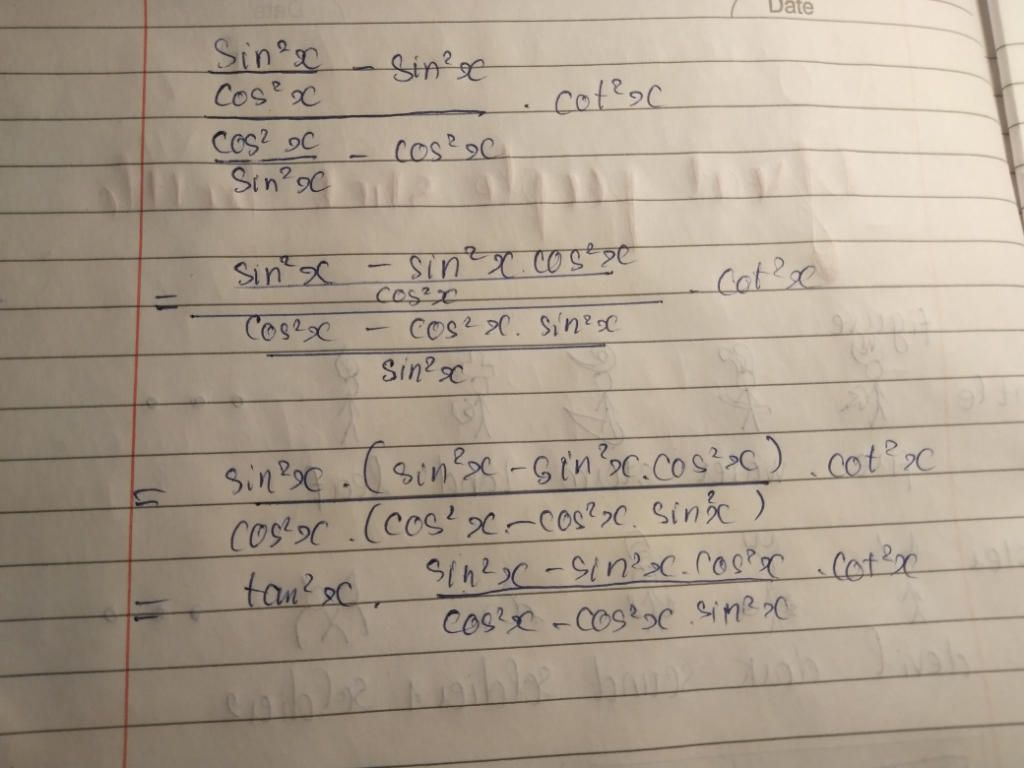 Date
sin²x/cos²x − sin²x
――――――― · cot²x
cos²x/sin²x − cos²x
= (sin²x − sin²x.cos²x)/cos²x
――――――― . cot²x
(cos²x − cos²x. sin²x)/sin²x
= sin²x . (sin²x − sin²x.cos²x) / cos²x . (cos²x − cos²x. sin²x) . cot²x
= tan²x . (sin²x − sin²x.cos²x) / (cos²x − cos²x .sin²x) .cot²x